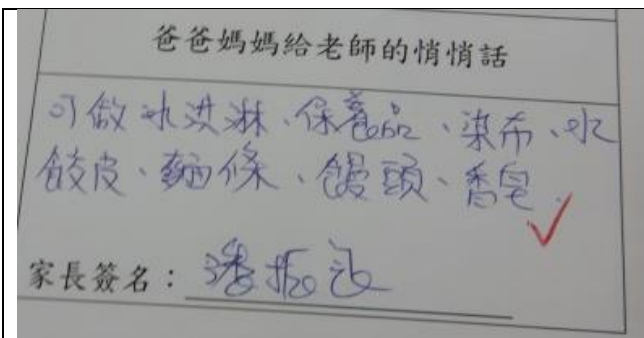 爸爸媽媽給老師的悄悄話
可做冰淇淋、保養品、染布、水
餃皮、麵條、饅頭、香皂.
家長簽名：潘振